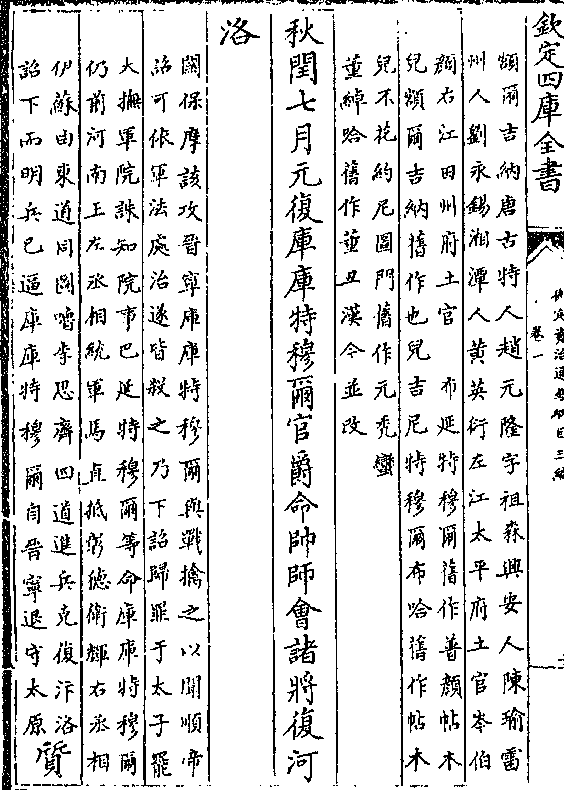 欽定四庫全書
卷一
額爾吉納唐古特人趙元隆字祖森興安人陳瑜雷
州人劉永錫湘潭人黃英衍左江太平府土官岑伯
顏右江田州府土官 布延特穆爾舊作普顏帖木
兒額爾吉納舊作也兒吉尼特穆爾布哈舊作帖木
兒不花約尼圖門舊作元禿蠻
董綽哈舊作董丑漢今並改
秋閏七月元復庫庫特穆爾官爵命帥師會諸將復河
洛
關保摩該攻晉寧庫庫特穆爾與戰擒之以聞順帝
詔可依軍法處治遂皆殺之乃下詔歸罪于太子罷
大撫軍院誅知院事巴延特穆爾等命庫庫特穆爾
仍前河南王左丞相統軍馬直抵彰德衛輝右丞相
伊蘇由東道圖嚕李思齊四道進兵克復汴洛
詔下而明兵已逼庫庫特穆爾自晉寧退守太原
質